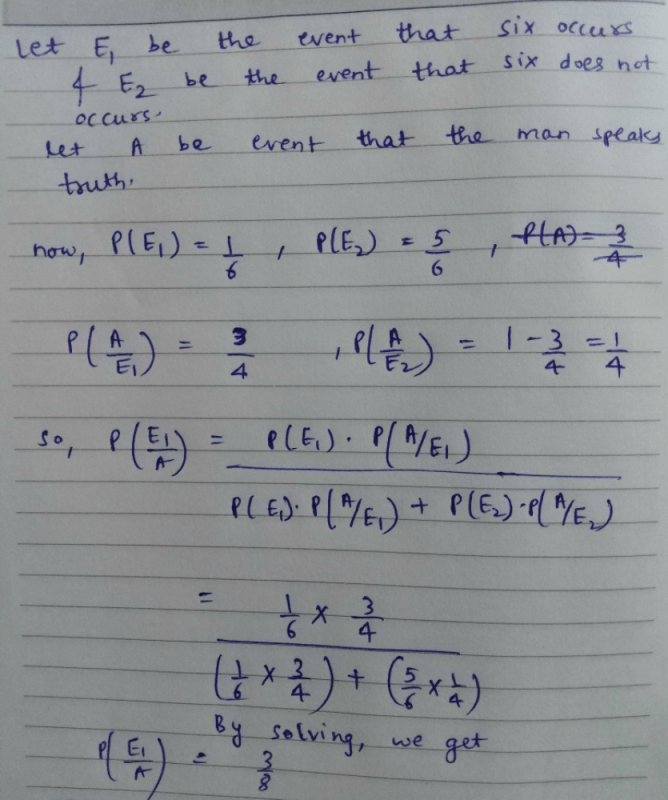 Let E₁ be the event that six occurs
& E₂ be the event that six does not
occurs.
Let A be event that the man speaks
truth.
now, P(E₁) = 1/6 , P(E₂) = 5/6 , P(A) = 3/4
P(A/E₁) = 3/4 , P(A/E₂) = 1 - 3/4 = 1/4
so, P(E₁/A) = P(E₁) · P(A/E₁)
P(E₁) · P(A/E₁) + P(E₂) · P(A/E₂)
= 1/6 × 3/4
(1/6 × 3/4) + (5/6 × 1/4)
By solving, we get
P(E₁/A) = 3/8